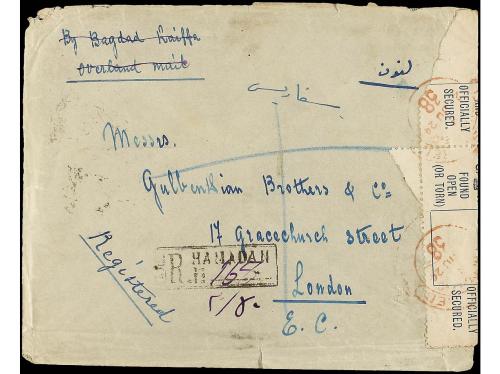 By Bagdad Kaiffa
overland mail
لندن
سفارشی
Messrs.
Gulbenkian Brothers & Co
17 Gracechurch street
London
E. C.
Registered
R HAMADAN
۲/۸۰
OFFICIALLY
SECURED.
FOUND
OPEN
(OR TORN)
OFFICIALLY
SECURED.
38
38